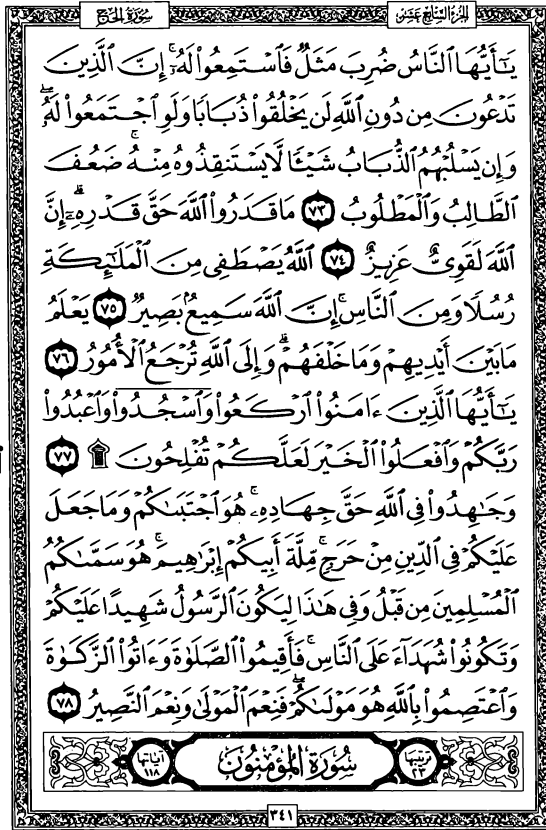 الجزء السابع عشر
سورة الحج
يَٰٓأَيُّهَا ٱلنَّاسُ ضُرِبَ مَثَلٌ فَٱسْتَمِعُوا۟ لَهُۥٓ ۚ إِنَّ ٱلَّذِينَ
تَدْعُونَ مِن دُونِ ٱللَّهِ لَن يَخْلُقُوا۟ ذُبَابًا وَلَوِ ٱجْتَمَعُوا۟ لَهُۥ ۖ
وَإِن يَسْلُبْهُمُ ٱلذُّبَابُ شَيْـًٔا لَّا يَسْتَنقِذُوهُ مِنْهُ ۚ ضَعُفَ
ٱلطَّالِبُ وَٱلْمَطْلُوبُ ٧٣ مَا قَدَرُوا۟ ٱللَّهَ حَقَّ قَدْرِهِۦٓ ۗ إِنَّ
ٱللَّهَ لَقَوِىٌّ عَزِيزٌ ٧٤ ٱللَّهُ يَصْطَفِى مِنَ ٱلْمَلَٰٓئِكَةِ
رُسُلًا وَمِنَ ٱلنَّاسِ ۚ إِنَّ ٱللَّهَ سَمِيعٌۢ بَصِيرٌ ٧٥ يَعْلَمُ
مَا بَيْنَ أَيْدِيهِمْ وَمَا خَلْفَهُمْ ۗ وَإِلَى ٱللَّهِ تُرْجَعُ ٱلْأُمُورُ ٧٦
يَٰٓأَيُّهَا ٱلَّذِينَ ءَامَنُوا۟ ٱرْكَعُوا۟ وَٱسْجُدُوا۟ وَٱعْبُدُوا۟
رَبَّكُمْ وَٱفْعَلُوا۟ ٱلْخَيْرَ لَعَلَّكُمْ تُفْلِحُونَ ۩ ٧٧
وَجَٰهِدُوا۟ فِى ٱللَّهِ حَقَّ جِهَادِهِۦ ۚ هُوَ ٱجْتَبَىٰكُمْ وَمَا جَعَلَ
عَلَيْكُمْ فِى ٱلدِّينِ مِنْ حَرَجٍ ۚ مِّلَّةَ أَبِيكُمْ إِبْرَٰهِيمَ ۚ هُوَ سَمَّىٰكُمُ
ٱلْمُسْلِمِينَ مِن قَبْلُ وَفِى هَٰذَا لِيَكُونَ ٱلرَّسُولُ شَهِيدًا عَلَيْكُمْ
وَتَكُونُوا۟ شُهَدَآءَ عَلَى ٱلنَّاسِ ۚ فَأَقِيمُوا۟ ٱلصَّلَوٰةَ وَءَاتُوا۟ ٱلزَّكَوٰةَ
وَٱعْتَصِمُوا۟ بِٱللَّهِ هُوَ مَوْلَىٰكُمْ ۖ فَنِعْمَ ٱلْمَوْلَىٰ وَنِعْمَ ٱلنَّصِيرُ ٧٨
ترتيبها ٢٣ سورة المؤمنون آياتها ١١٨
٣٤١